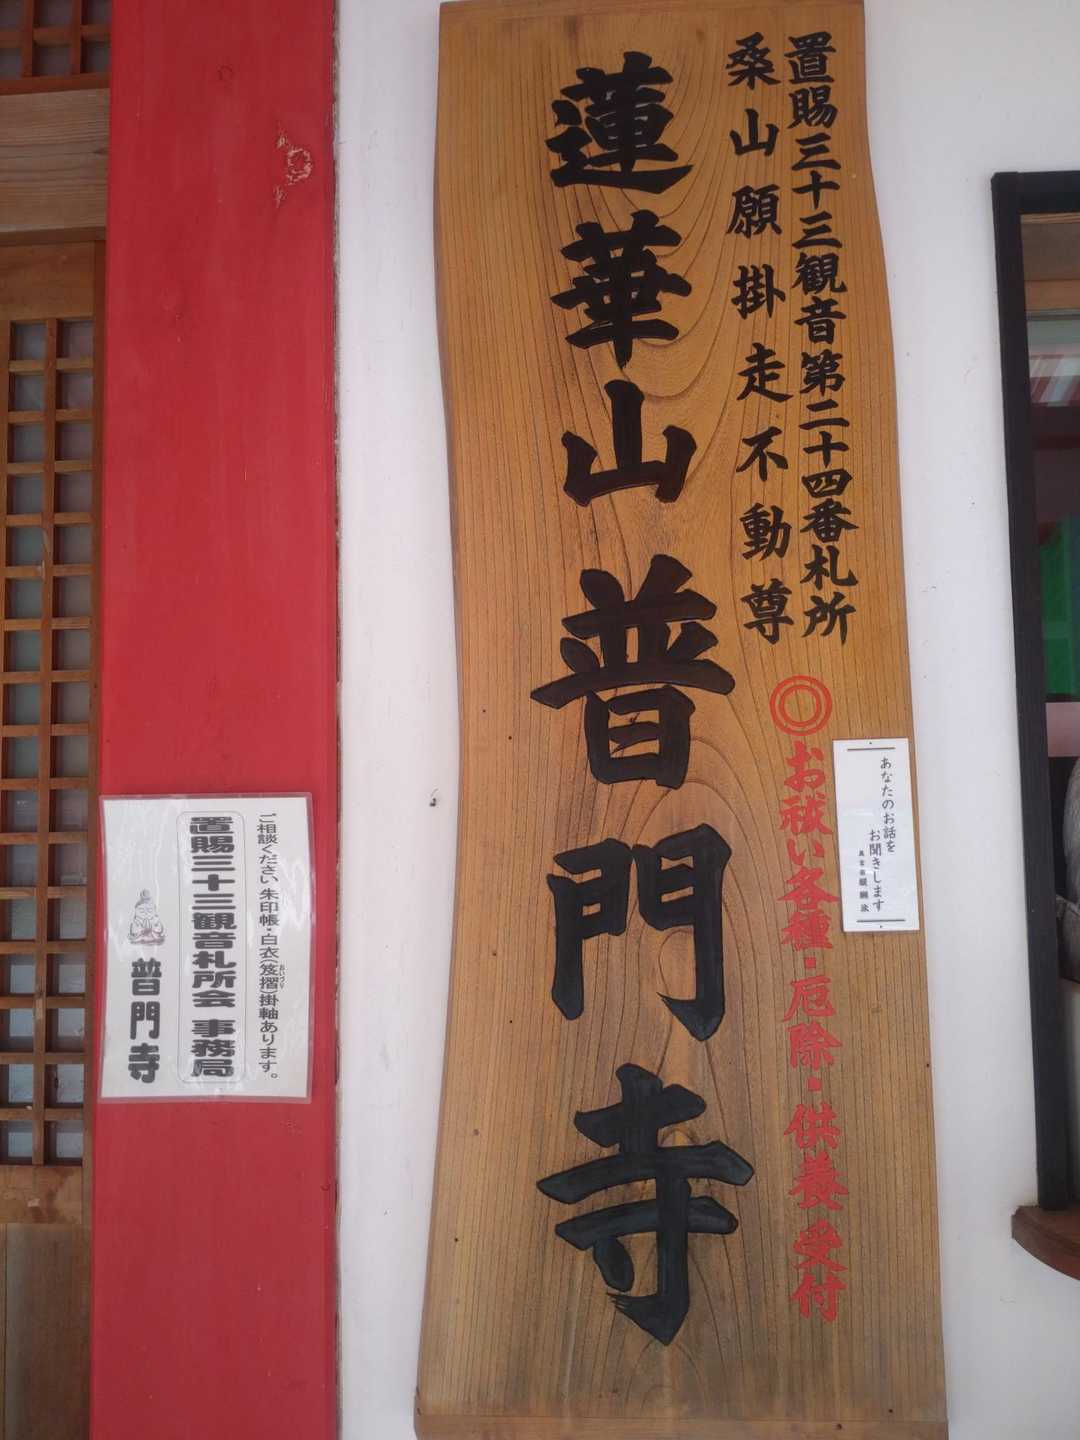 置賜三十三観音第二十四番札所
桑山願掛走不動尊
◎お祓い各種・厄除・供養受付
蓮華山普門寺
あなたのお話を
お聞きします
ご相談ください 朱印帳・白衣(笈摺)掛軸あります。
おいづり
置賜三十三観音札所会 事務局
普門寺